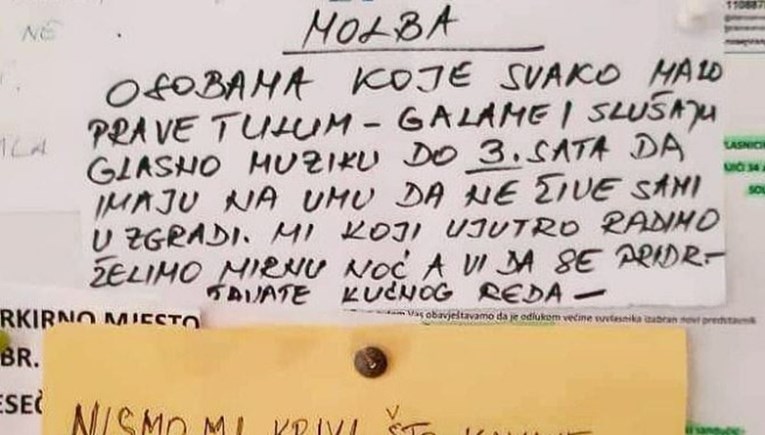 NE
110887
MOLBA
OSOBAMA KOJE SVAKO MALO
PRAVE TULUM - GALAME I SLUŠAJU
GLASNO MUZIKU DO 3. SATA DA
IMAJU NA UMU DA NE ŽIVE SAMI
U ZGRADI. MI KOJI UJUTRO RADIMO
ŽELIMO MIRNU NOĆ A VI DA SE PRIDR-
ŽAVATE KUĆNOG REDA -
LASNICI
RKIRNO MJESTO
Vas obavještavamo da je odlukom većine suvlasnika izabran novi predstavnik
BR.
ESEČ
NISMO MI KRIVI ŠTO